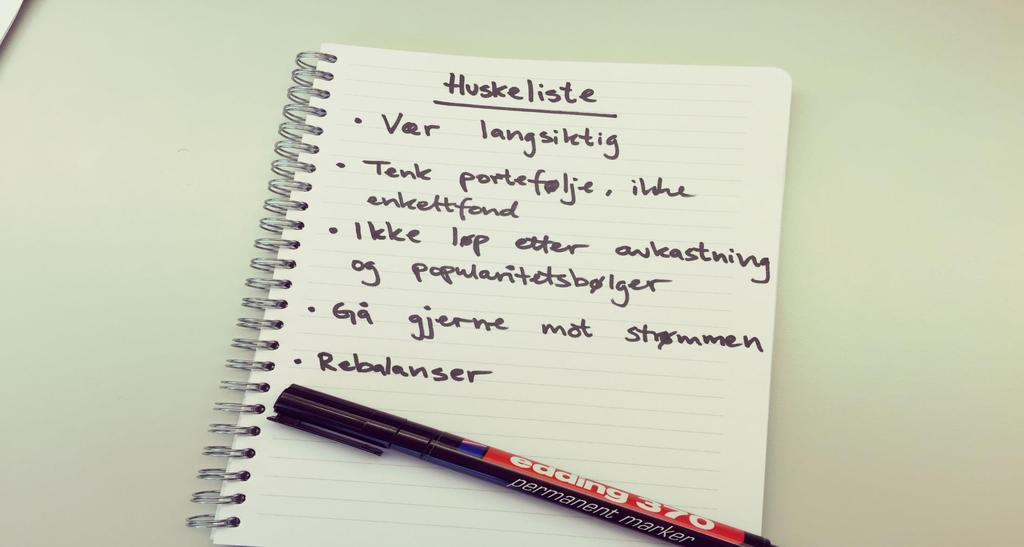 Huskeliste
• Vær langsiktig
• Tenk portefølje, ikke
enkeltfond
• Ikke løp etter avkastning
og popularitetsbølger
• Gå gjerne mot strømmen
• Rebalanser
edding 370
permanent marker